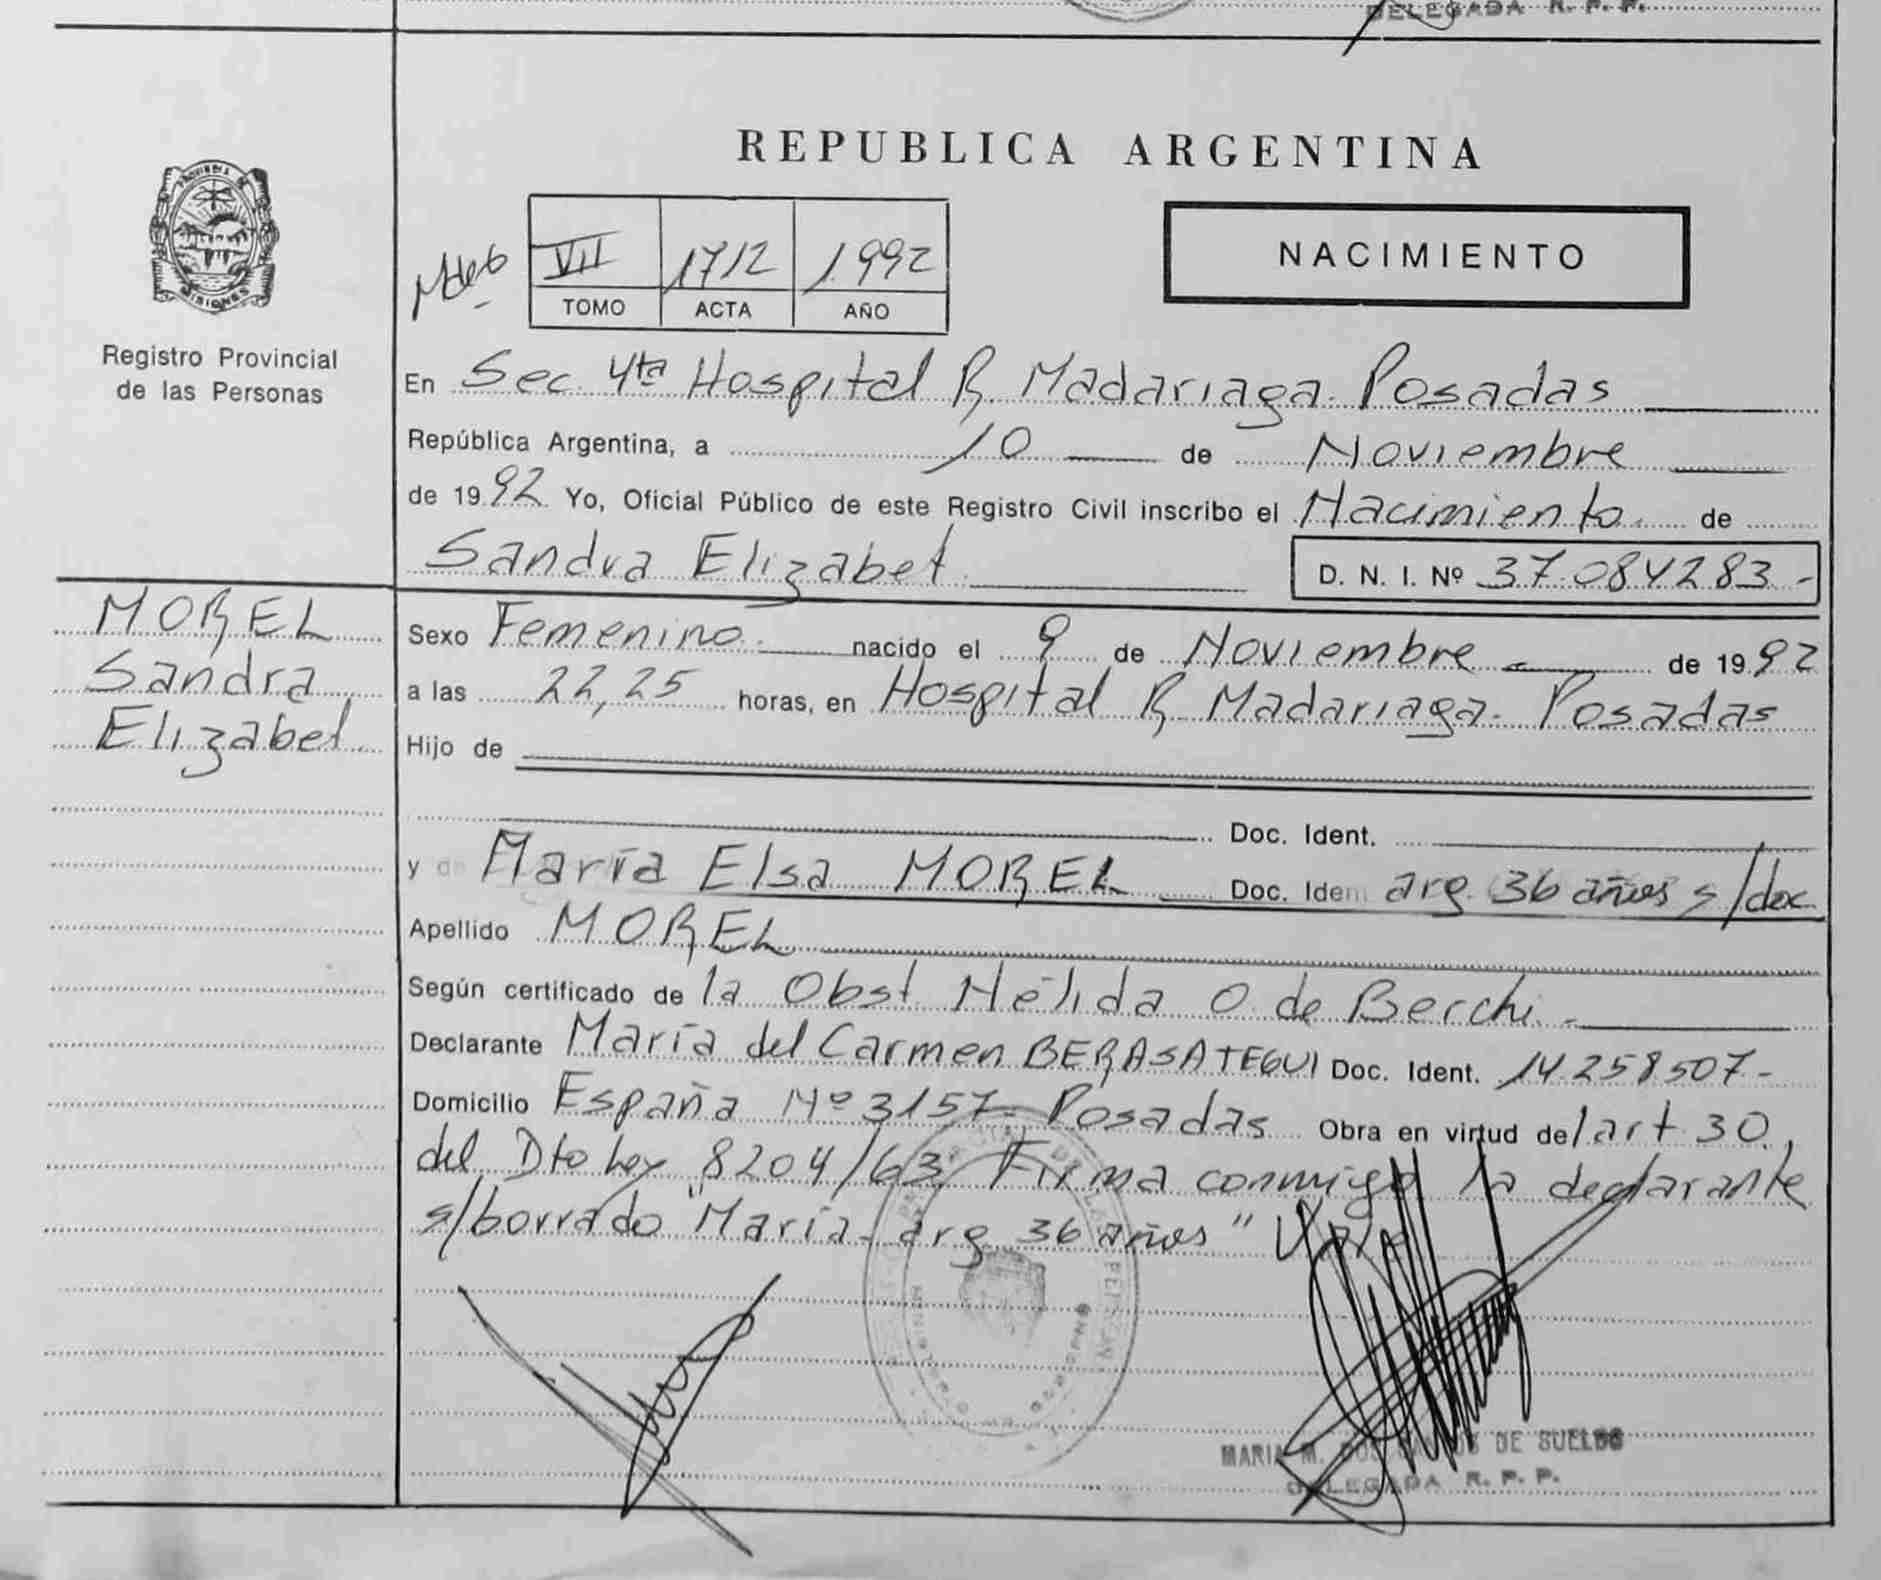 DELEGADA R. P. P.
REPUBLICA ARGENTINA
PROVINCIA DE
MISIONES
Registro Provincial
de las Personas
VII 1712 1.992
TOMO ACTA AÑO
NACIMIENTO
En Sec. 4ta Hospital R. Madariaga. Posadas
República Argentina, a 10 de Noviembre
de 1992 Yo, Oficial Público de este Registro Civil inscribo el Nacimiento de
Sandra Elizabet D. N. I. Nº 37.084283-
MOREL
Sandra
Elizabet
Sexo Femenino nacido el 9 de Noviembre de 1992
a las 22,25 horas, en Hospital R. Madariaga. Posadas
Hijo de
Doc. Ident.
y de María Elsa MOREL Doc. Iden arg. 36 años s/doc.
Apellido MOREL
Según certificado de la Obst. Nélida O. de Berchi.-
Declarante María del Carmen BERASATEGUI Doc. Ident. 14.258507-
Domicilio España Nº 3157. Posadas Obra en virtud del art 30,
del Dto Ley 8204/63. Firma conmigo la declarante
s/borrado "María- arg. 36 años" Vale
MARIA M. DOS SANTOS DE SUELDO
DELEGADA R. P. P.